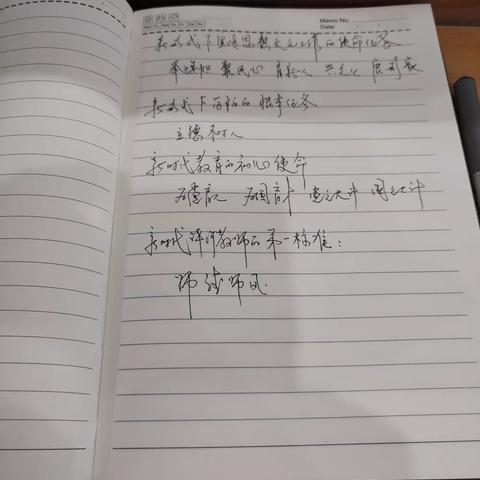 Memo No.
Date / /
新形式下宣传思想文化工作的使命任务
举旗帜 聚民心 育新人 兴文化 展形象
新形式下的根本任务
立德树人
新时代教育的初心使命
为党育人 为国育才 党之大计 国之大计
新时代评价教师的第一标准：
师德师风